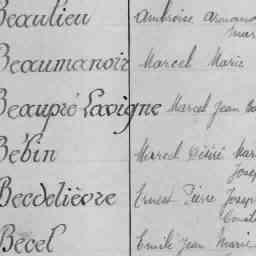 Beaulieu Ambroise Armand
Mar
Beaumanoir Marcel Marie
Beaupré Lavigne Marcel Jean
Bébin Marcel Désiré Mar
Josep
Becdelièvre Ernest Pierre Josep
Const
Bécel Emile Jean Marie